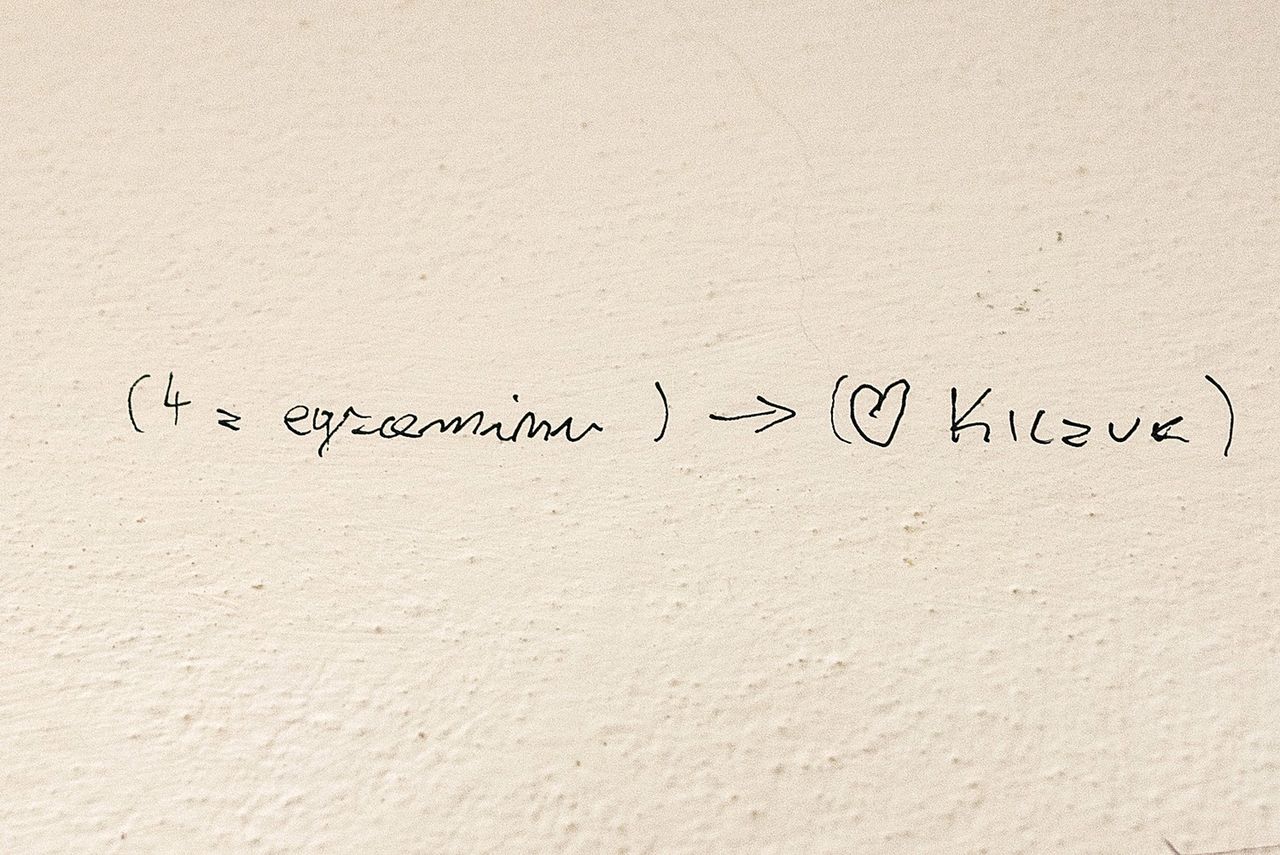 (4 z egzaminu) → (♡ Kiczuk)